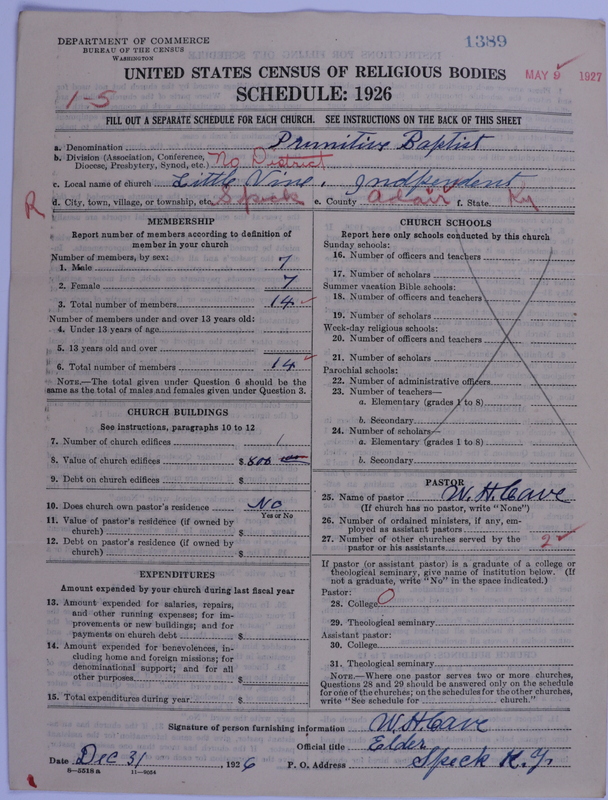 DEPARTMENT OF COMMERCE
BUREAU OF THE CENSUS
WASHINGTON
1389
UNITED STATES CENSUS OF RELIGIOUS BODIES
MAY 9 1927
1-5
SCHEDULE: 1926
FILL OUT A SEPARATE SCHEDULE FOR EACH CHURCH. SEE INSTRUCTIONS ON THE BACK OF THIS SHEET
a. Denomination Primitive Baptist
b. Division (Association, Conference, Diocese, Presbytery, Synod, etc.) No District
c. Local name of church Little Vine, Indpendent
R
d. City, town, village, or township, etc. Speck e. County Adair f. State Ky
MEMBERSHIP
Report number of members according to definition of
member in your church
Number of members, by sex:
1. Male 7
2. Female 7
3. Total number of members 14
Number of members under and over 13 years old:
4. Under 13 years of age
5. 13 years old and over
6. Total number of members 14
NOTE.—The total given under Question 6 should be
same as the total of males and females given under Question 3.
CHURCH BUILDINGS
See instructions, paragraphs 10 to 12
7. Number of church edifices 1
8. Value of church edifices $ 800
9. Debt on church edifices $
10. Does church own pastor's residence No
Yes or No
11. Value of pastor's residence (if owned by
church) $
12. Debt on pastor's residence (if owned by
church) $
EXPENDITURES
Amount expended by your church during last fiscal year
13. Amount expended for salaries, repairs,
and other running expenses; for im-
provements or new buildings; and for
payments on church debt $
14. Amount expended for benevolences, in-
cluding home and foreign missions; for
denominational support; and for all
other purposes $
15. Total expenditures during year $
CHURCH SCHOOLS
Report here only schools conducted by this church
Sunday schools:
16. Number of officers and teachers
17. Number of scholars
Summer vacation Bible schools:
18. Number of officers and teachers
19. Number of scholars
Week-day religious schools:
20. Number of officers and teachers
21. Number of scholars
Parochial schools:
22. Number of administrative officers
23. Number of teachers—
a. Elementary (grades 1 to 8)
b. Secondary
24. Number of scholars—
a. Elementary (grades 1 to 8)
b. Secondary
PASTOR
25. Name of pastor W. H. Cave
(If church has no pastor, write "None")
26. Number of ordained ministers, if any, em-
ployed as assistant pastors
27. Number of other churches served by the
pastor or his assistants 2
If pastor (or assistant pastor) is a graduate of a college or
theological seminary, give name of institution below. (If
not a graduate, write "No" in the space indicated.)
Pastor:
28. College 0
29. Theological seminary
Assistant pastor:
30. College
31. Theological seminary
NOTE.—Where one pastor serves two or more churches,
Questions 28 and 29 should be answered only on the schedule
for one of the churches; on the schedules for the other churches,
write "See schedule for church."
Signature of person furnishing information W. H Cave
Official title Elder
Date Dec 31, 1926 P. O. Address Speck K.y.
8—5518 a 11—9054